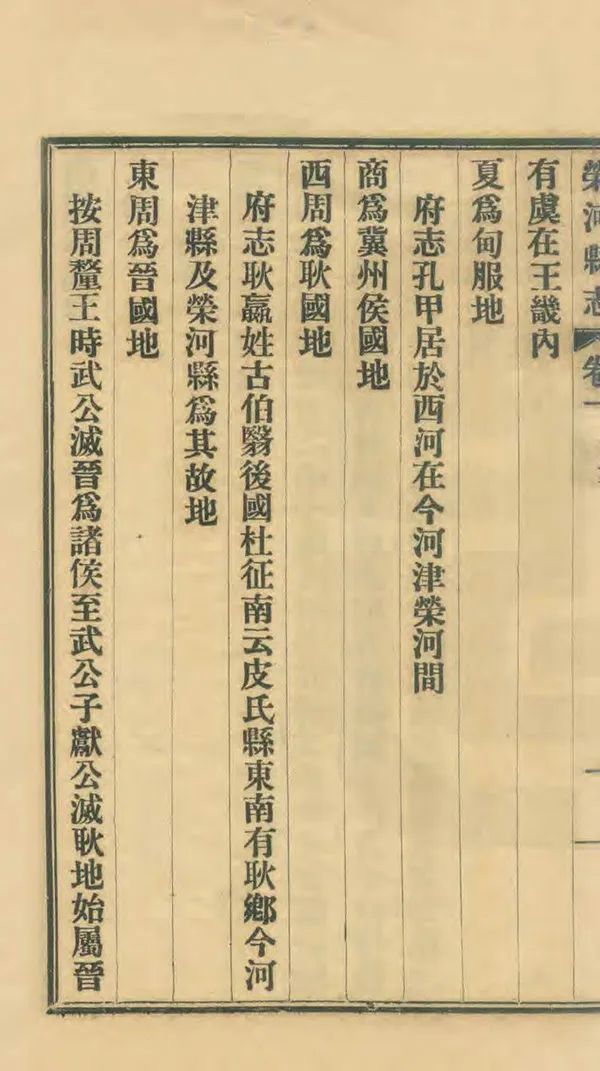 榮河縣志 卷一
有虞在王畿內
夏爲甸服地
府志孔甲居於西河在今河津榮河間
商爲冀州侯國地
西周爲耿國地
府志耿嬴姓古伯翳後國杜征南云皮氏縣東南有耿鄉今河
津縣及榮河縣爲其故地
東周爲晉國地
按周釐王時武公滅晉爲諸侯至武公子獻公滅耿地始屬晉